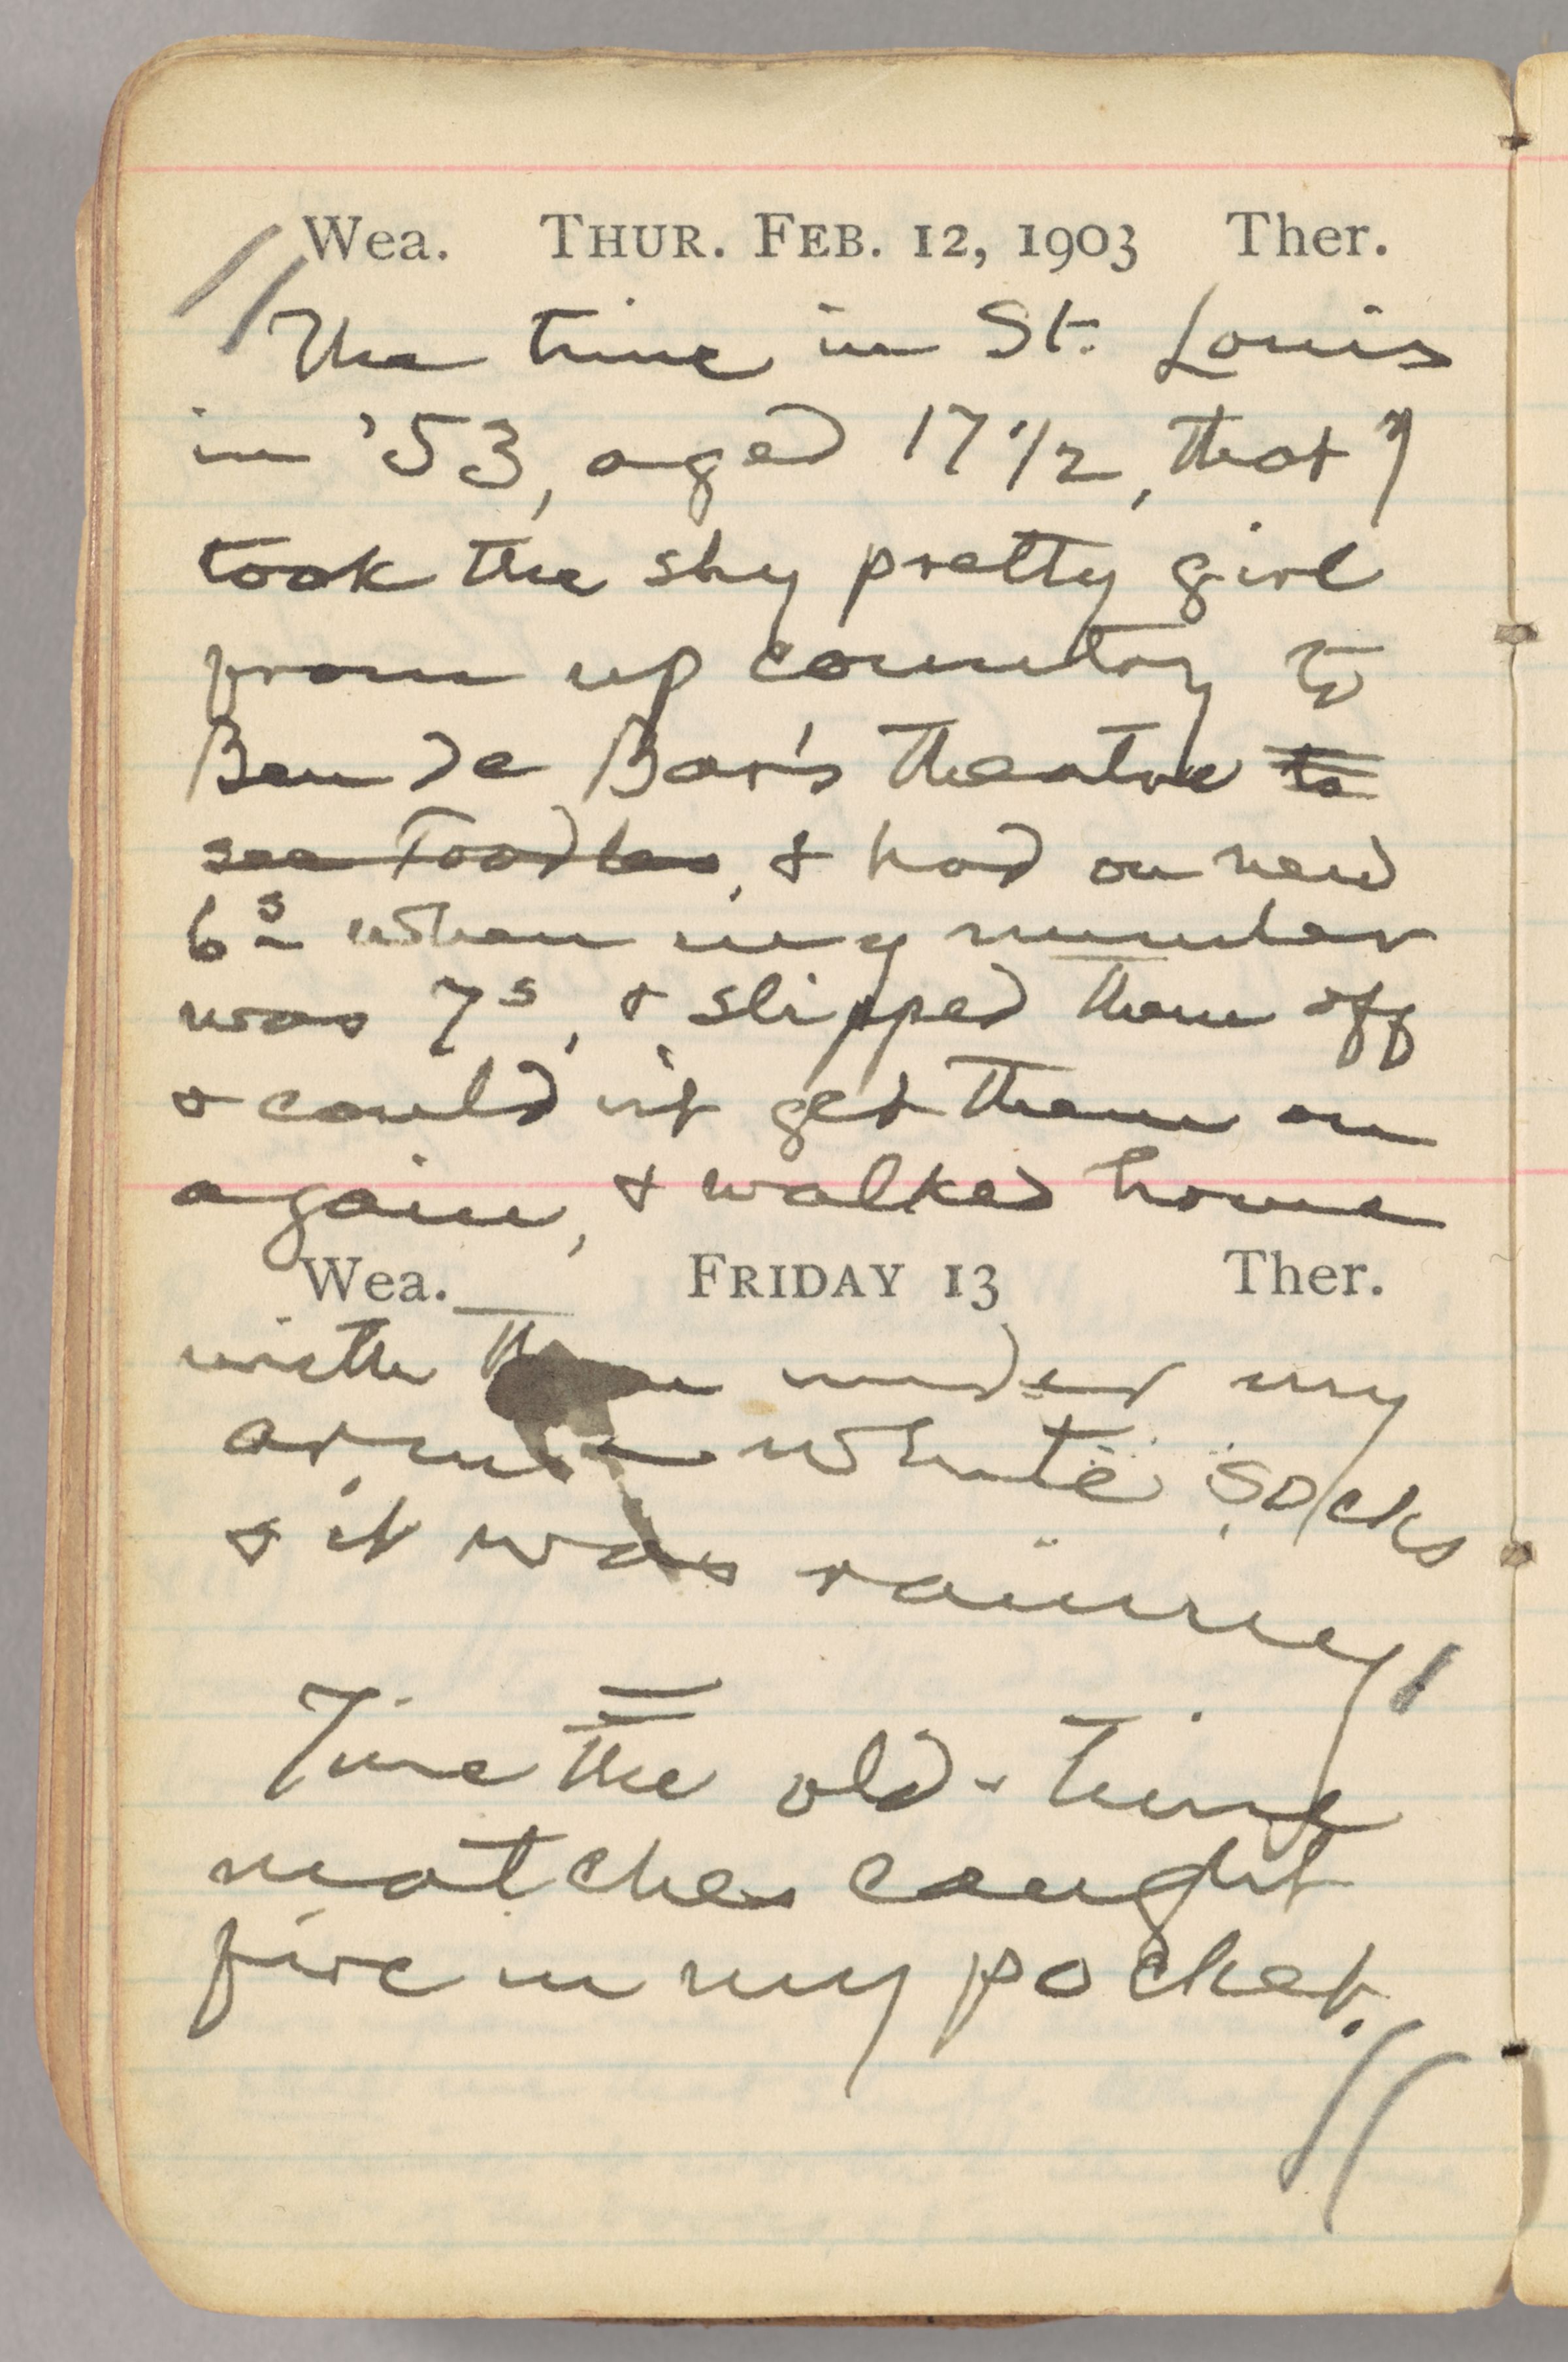 Wea. THUR. FEB. 12, 1903 Ther.
The time in St. Louis
in '53, aged 17 1/2, that I
took the shy pretty girl
from up country to
Ben de Bar's theatre to
see Toodles, & had on new
6s when my number
was 7s, & slipped them off
& could n't get them on
again, & walked home
Wea. FRIDAY 13 Ther.
with them under my
arm – white socks
& it was rainy
Time the old-time
matches caught
fire in my pocket.